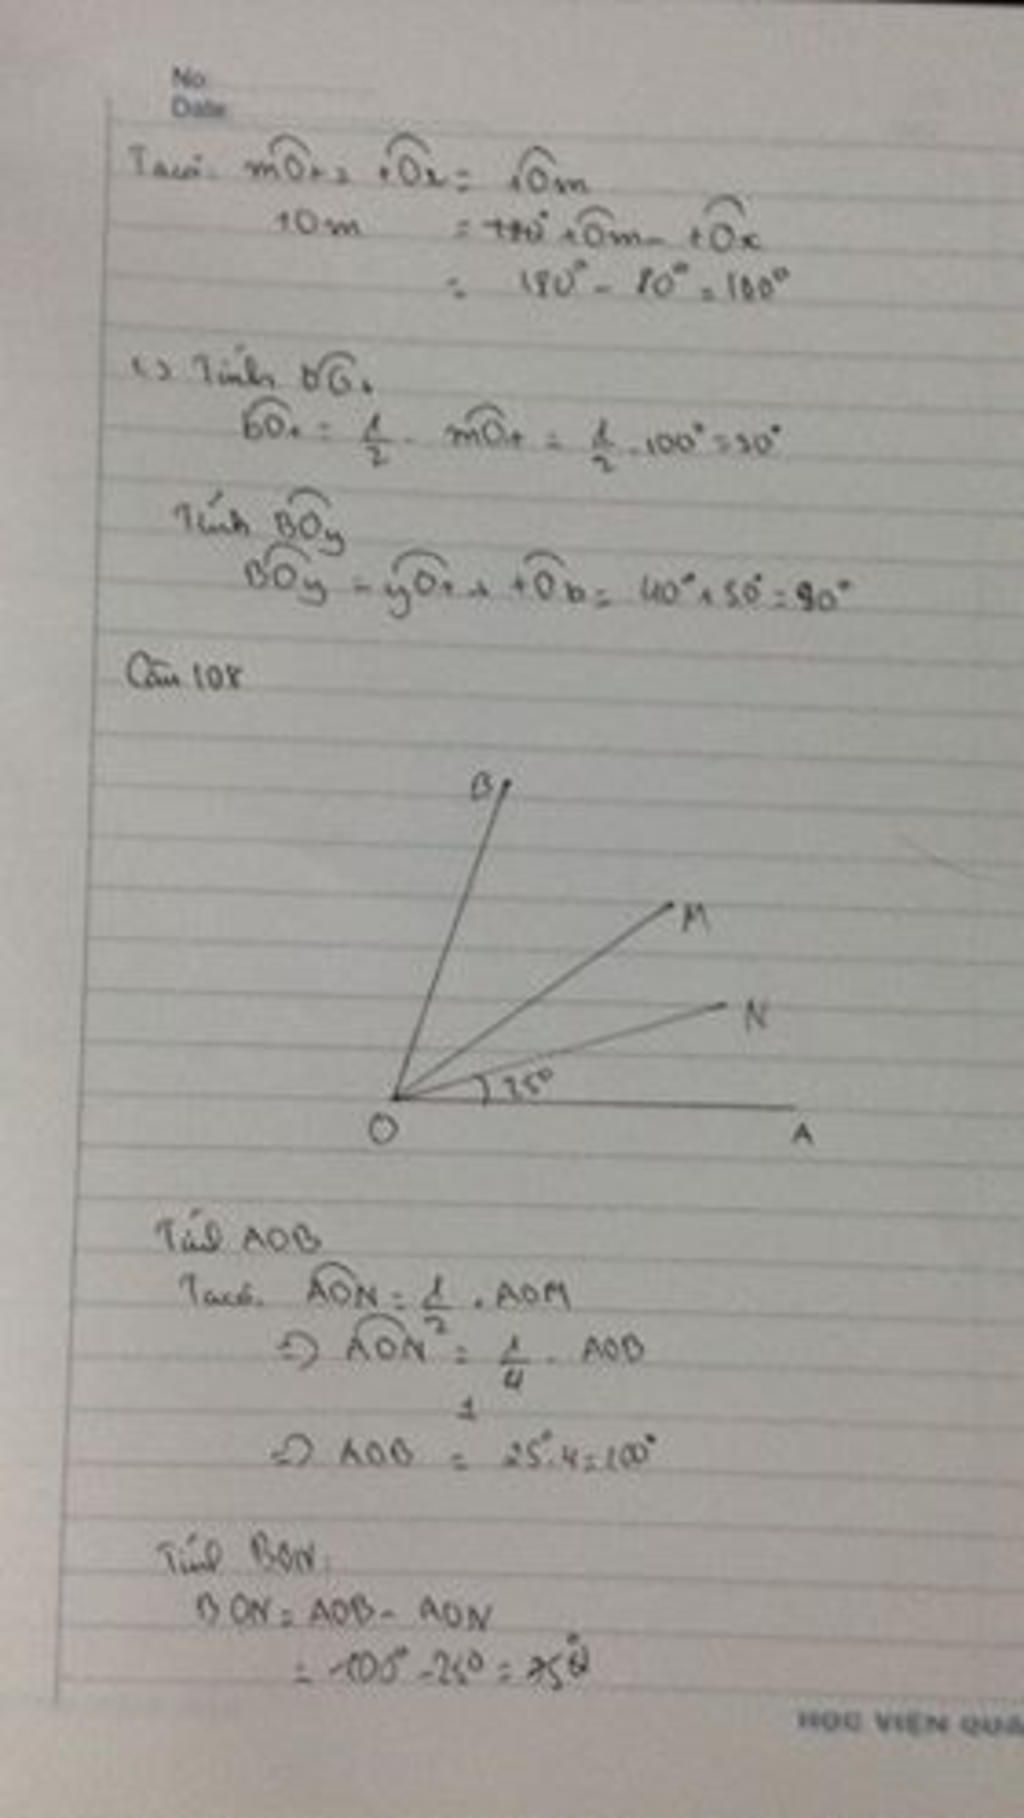 No
Date
Ta có. mOt + tOx = xOm
tOm = 180° xOm - tOx
= 180° - 80° = 100°
c) Tính bOt
bOt = 1/2 . mOt = 1/2 . 100° = 50°
Tính BOy
BOy = yOt + tOb = 40° + 50° = 90°
Câu 108
B
M
N
25°
O
A
Tính AOB
Ta có. AON = 1/2 . AOM
=> AON = 1/4 . AOB
=> AOB = 25°.4 = 100°
Tính BON:
BON = AOB - AON
= 100° - 25° = 75°
HỌC VIỆN